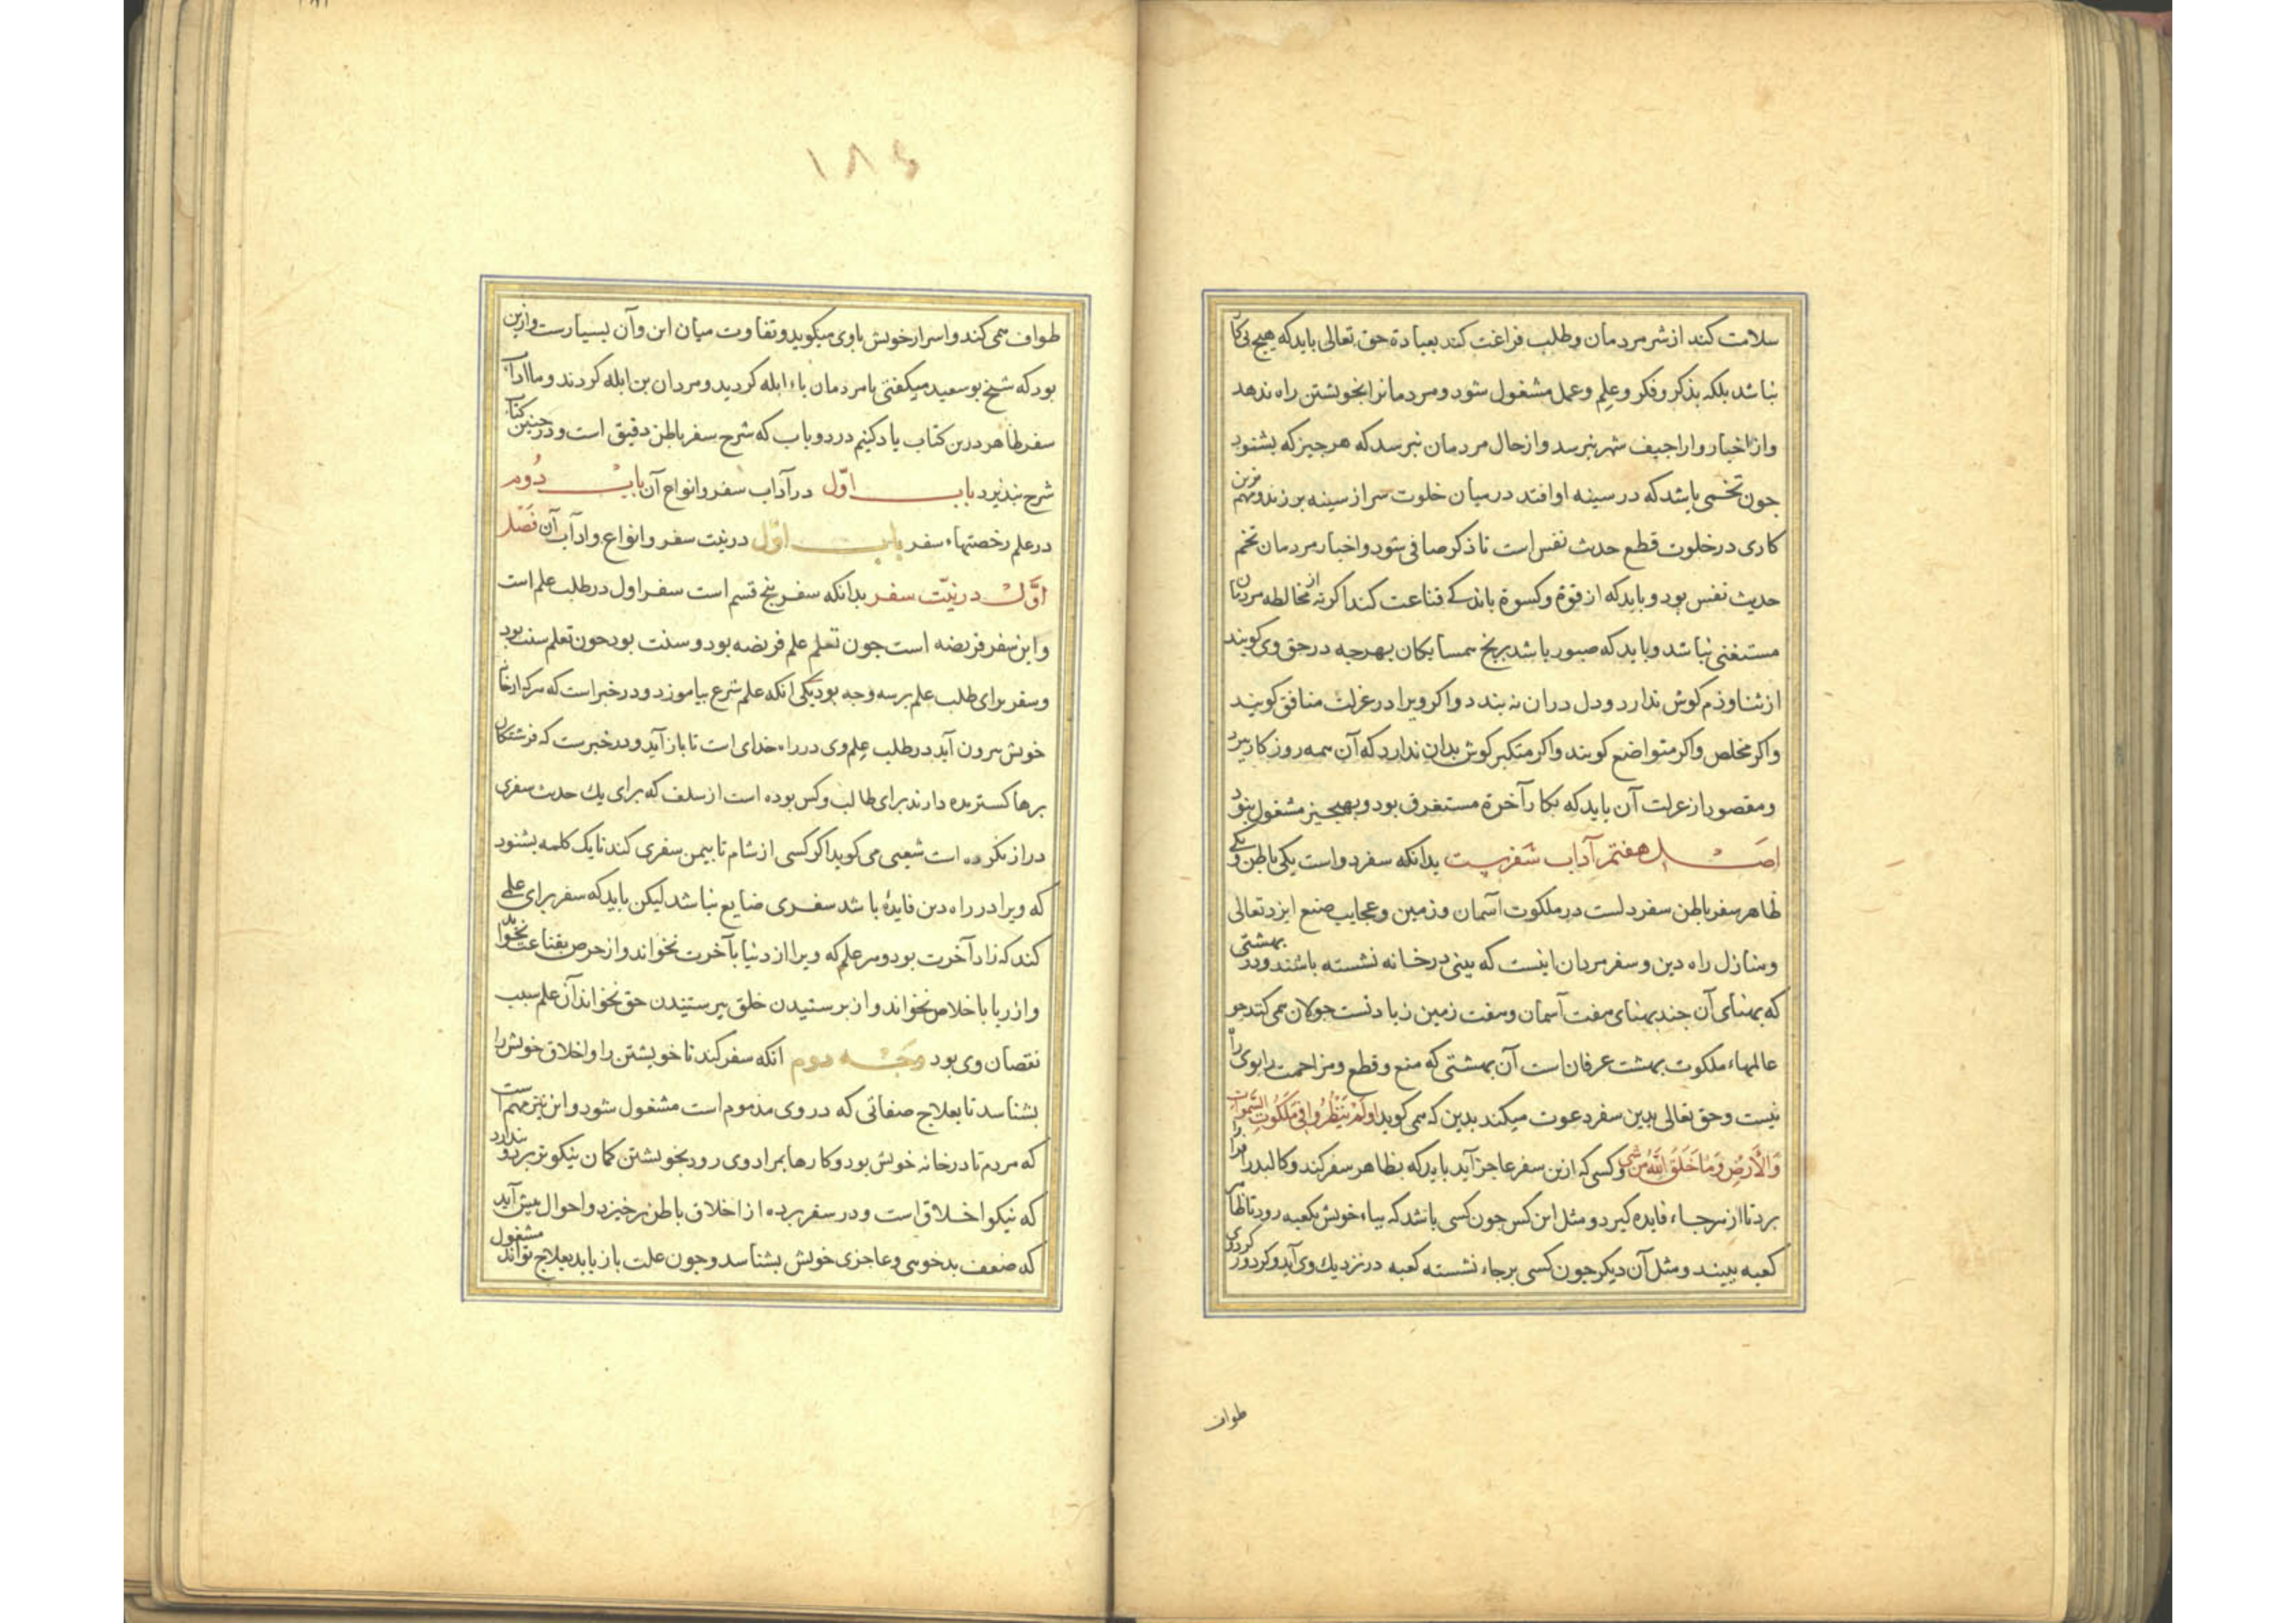 سلامت کند از شر مردمان وطلب فراغت کند بعبادة حق تعالی باید که هیچ بی کا
نباشد بلکه بذکر وفکر وعلم وعمل مشغول شود ومردمانرا بخویشتن راه ندهد
واز اخبار واراجیف شهر نپرسد واز حال مردمان نپرسد که هرجیز که بشنود
جون تخمی باشد که در سینه او افتد در میان خلوت سر از سینه برزند ومهم ترین
کاری در خلوت قطع حدیث نفس است تا ذکر صافی شود واخبار مردمان تخم
حدیث نفس بود وباید که از قوة وکسوة باندکی قناعت کند اکرنه از مخالطه مردمان
مستغنی نباشد وباید که صبور باشد برنج همسایکان بهرجه در حق وی کویند
از ثنا وذم کوش ندارد ودل دران نه بندد واکر ویرا در عزلت منافق کویند
واکر مخلص واکر متواضع کویند واکر متکبر کوش بدان ندارد که آن همه روزکار ببرد
ومقصود از عزلت آن باید که بکار آخرة مستغرق بود وبهیچ جیز مشغول نبود
اصل هفتم آداب سفرست بدانکه سفر دو است یکی باطن ویکی
ظاهر سفر باطن سفر دلست در ملکوت آسمان وزمین وعجایب صنع ایزد تعالی
ومنازل راه دین وسفر مردان اینست که ببینی در خانه نشسته باشند ودر بهشتی
که پهنای آن جند پهنای هفت آسمان وهفت زمین زیادتست جولان همی کنند جو
عالمهاء ملکوت بهشت عرفان است آن بهشتی که منع وقطع ومزاحمت را بوی راه
نیست وحق تعالی بدین سفر دعوت میکند بدین که همی کوید اولم ینظروا فی ملکوت السموات
والارض وما خلق الله من شی وکسی که ازین سفر عاجز آید باید که بظاهر سفر کند وکالبد را فرا
برد تا از هر جاء فایده کیرد ومثل این کس جون کسی باشد که بپاء خویش بکعبه رود تا ظاهر
کعبه ببیند ومثل آن دیکر جون کسی برجاء نشسته کعبه در نزدیک وی آید وکرد ور کردی
طواف
۱۸۶
طواف همی کند واسرار خویش باوی میکوید وتفاوت میان این وآن بسیارست وازین
بود که شیخ بو سعید میکفتی یا مردمان باء ابله کردید ومردان بن ابله کردند وما آداب
سفر ظاهر درین کتاب یاد کنیم در دو باب که شرح سفر باطن دقیق است ودر جنین کتاب
شرح نپذیرد باب اوّل در آداب سفر وانواع آن باب دُوم
در علم رخصتهاء سفر باب اوّل در نیت سفر وانواع وادآب آن فَصْل
اوَّل در نیّت سفر بدانکه سفر پنج قسم است سفر اول در طلب علم است
واین سفر فریضه است جون تعلم علم فریضه بود وسنت بود جون تعلم سنت بود
وسفر برای طلب علم بر سه وجه بود یکی انکه علم شرع بیاموزد ودر خبر است که هرکه از خانه
خویش بیرون آید در طلب علم وی در راه خدای است تا باز آید ودر خبرست که فرشتکان
برها کسترده دارند برای طالب وکس بوده است از سلف که برای یک حدیث سفری
دراز بکرده است شعبی می کوید اکر کسی از شام تا بیمن سفری کند تا یک کلمه بشنود
که ویرا در راه دین فایدۀ باشد سفری ضایع نباشد لیکن باید که سفر برای علمی
کند که زاد آخرت بود وهر علم که ویرا از دنیا بآخرت نخواند واز حرص بقناعت نخواند
واز ریا باخلاص نخواند واز برستیدن خلق ببرستیدن حق نخواند آن علم سبب
نقصان وی بود وجه دوم انکه سفر کند تا خویشتن را واخلاق خویش را
بشناسد تا بعلاج صفاتی که در وی مذموم است مشغول شود واین نیز مهم است
که مردم تا در خانه خویش بود وکارها بمراد وی رود بخویشتن کمان نیکو برد وبندارد
که نیکو اخلاق است ودر سفر پرده از اخلاق باطن برخیزد واحوال پیش آید
که ضعف بدخویی وعاجزی خویش بشناسد وجون علت باز یابد بعلاج مشغول تواند